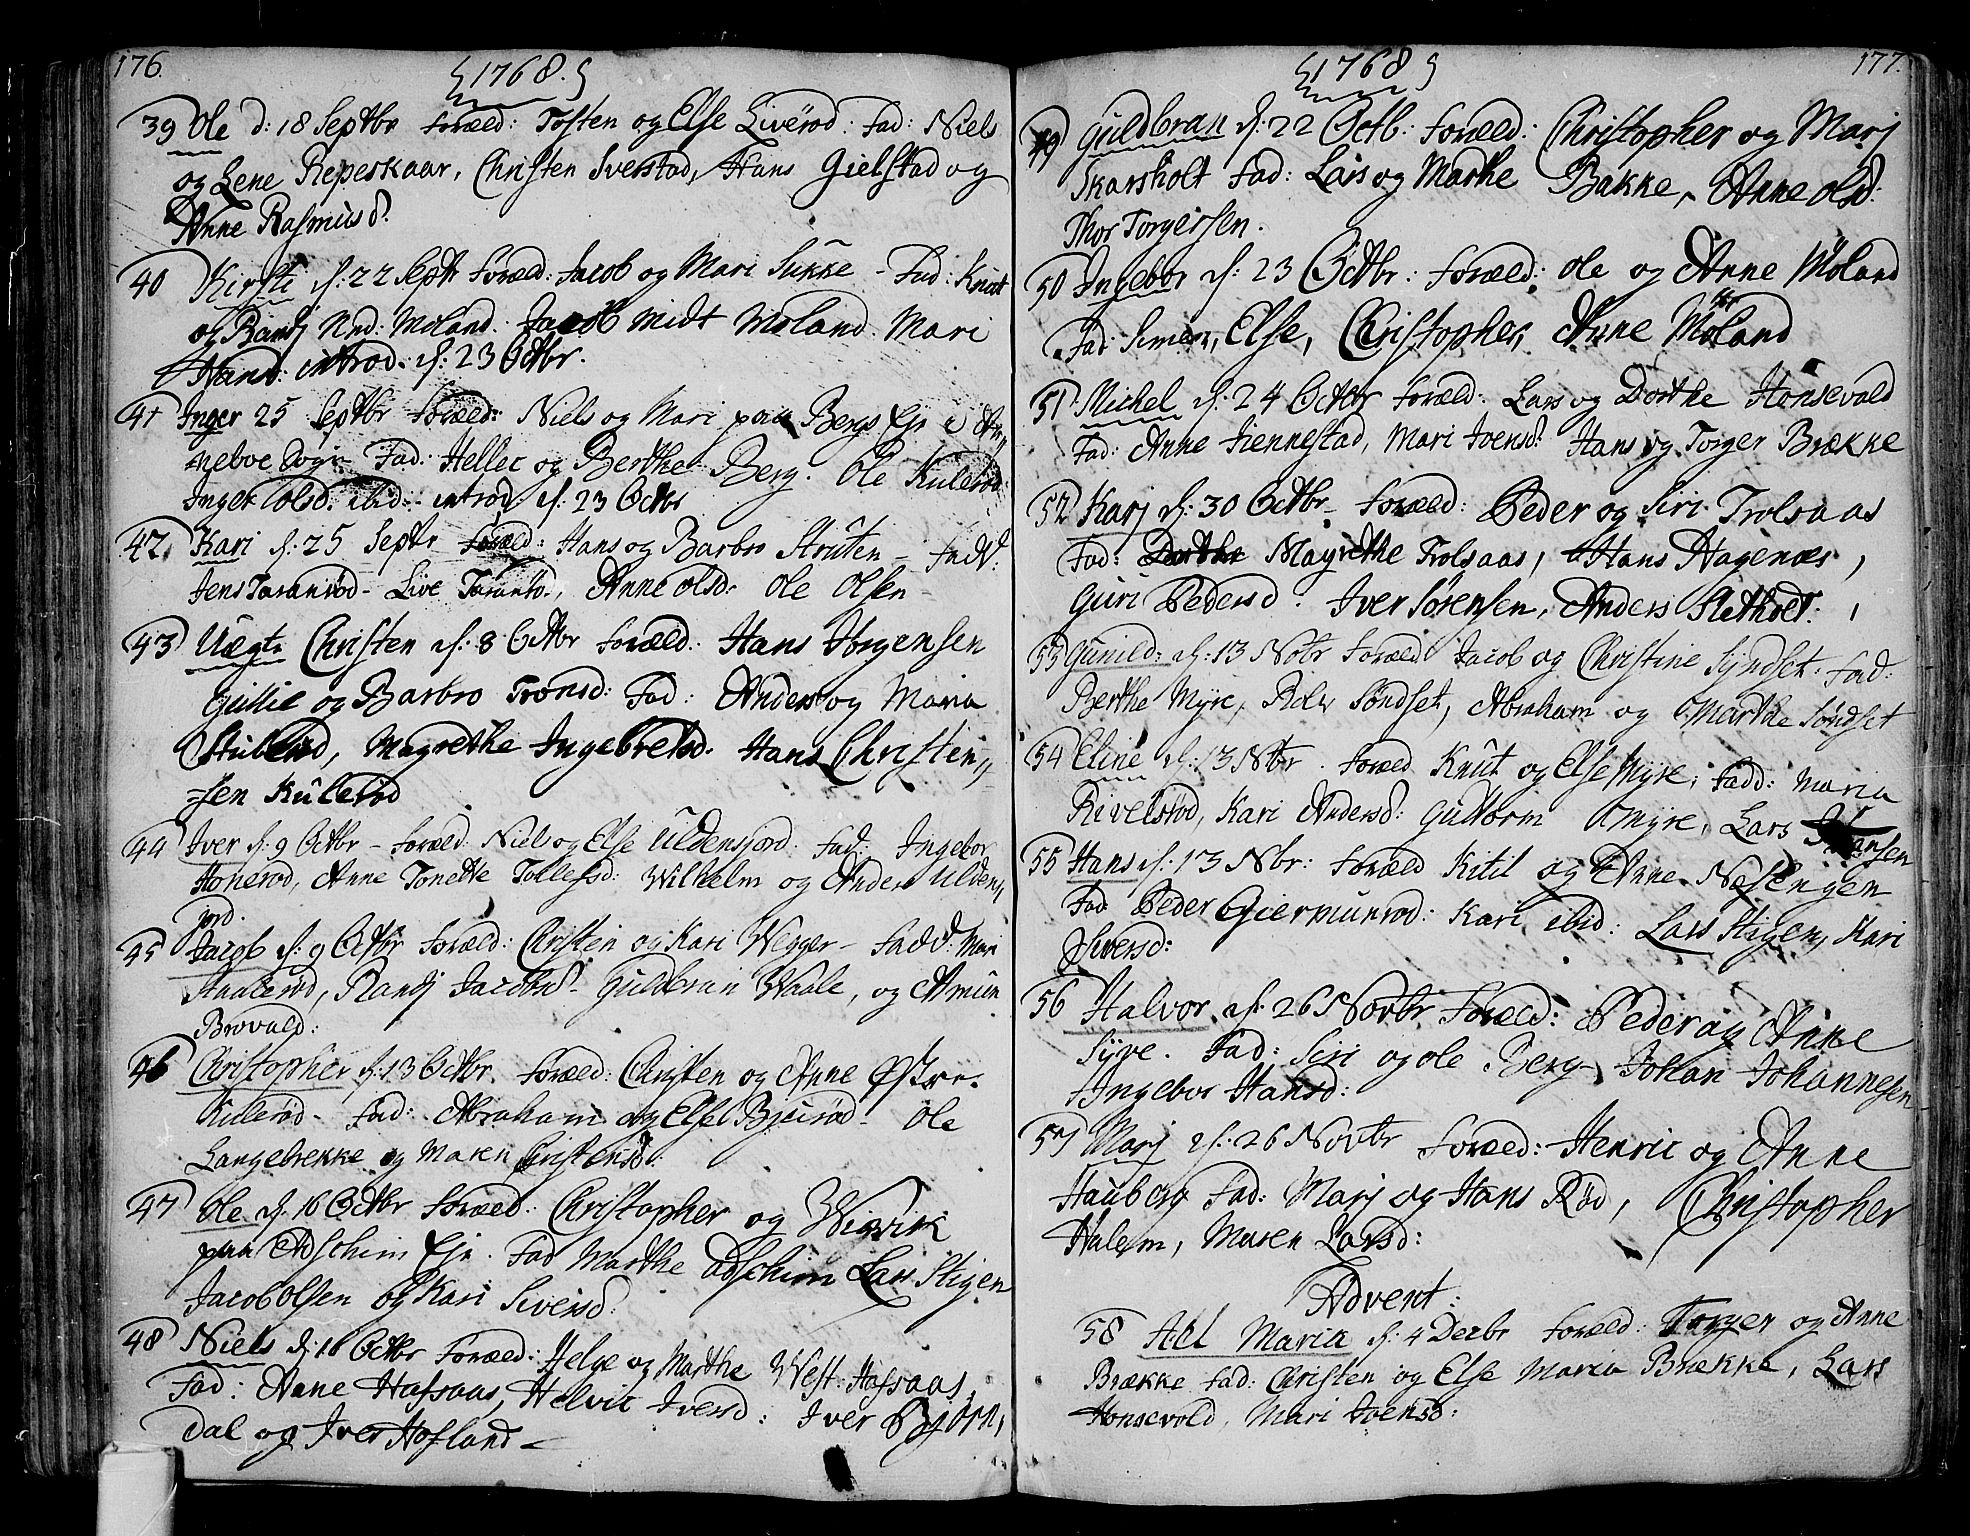 176.
1768.
39 Ole d: 18 Septbr Foræld: Tosten og Else Liverød: Fad: Niels
og Lene Repeskaar, Christen Sverstad, Hans Gielstad og
Anne Rasmusd:
40 Kirsti d: 22 Septr Foræld: Jacob og Mari Sukke - Fad: Knut
og Randj Nrd: Moland. Jacob Midt Moland. Mari
Hansd: introd: d: 23 Octbr.
41 Inger 25 Septbr Foræld: Niels og Mari paa Bergs Eje i An„
neboe Sogn Fad: Hellec og Berthe Berg. Ole Kulerød
Inger Tolsd: ibid: - introd d: 23 Octbr
42. Kari d: 25 Septr Foræld: Hans og Barbro Struten - Fadd:
Jens Taranrød - Live Taranrød, Anne Olsd: Ole Olsen -
43 Uægte Christen d: 8 Octbr Foræld: Hans Jørgensen
Gullie og Barbro Tronsd: Fad: Anders og Maria
Stulen, Magrethe Ingebretsd: Hans Christen„
sen Kulerød
44 Iver d: 9 Octbr - Foræld: Niels og Else Uldensjord. Fad: Ingebor
Honerød, Anne Tonette Tollefsd: Wilhelm og Anders Ulden„
jord.
45 Jacob d: 9 Octbr Foræld: Christen og Kari Wegger - Fadd: Mari
Aaalerød, Randj Jacobsd - Guldbran Waale, og Amun
Brovald:
46 Christopher d: 13 Octbr. Foræld: Christen og Anne Østre-
Kulerød - Fad: Abraham og Else Bjuerød - Ole
Langebrekke og Maren Christensd:
47 Ole d: 16 Octbr Foræld: Christopher og Wiwik
paa Adschim Eje. Fad Marthe Adschim Lars Stigen
Jacob Olsen og Kari Siversd:
48 Niels d: 16 Octbr Foræld: Helge og Marthe West: Hafsaas,
Fad: Anne Hafsaas, Helvic Iversd: Iver Bjørn„
dal og Iver Hofland -
177.
1768
49 Guldbran d: 22 Octb: Foræld: Christopher og Marj
Skarsholt Fad: Lars og Marthe Bakke, Anne Olsd:
Thor Torgersen.
50 Ingebor d: 23 Octbr: Foræld: Ole og Anne Moland
Fad: Simen, Else, Christopher, Anne Moland
51 Michel d: 24 Octbr Foræld: Lars og Dorthe Honsevald
Fad: Anne Fiennestad, Mari Joensd: Hans og Torger Brække
52 Karj d: 30 Octbr - Foræld: Peder og Siri Trolsaas
Fad: Magrethe Trolsaas, Hans Hagenæs,
Guri Pedersd. Iver Sørensen, Anders Sletholt:
53 Gunild: d: 13 Nobr Foræld Jacob og Christine Syndset. Fad:
Berthe Myre, Søndset, Abraham og Marthe Søndset
54 Eline d: 13 Nbr. Foræld Knut og Else Myre, Fadd: Maria
Rivelsrød, Kari Andersd: Gutorm Myre, Lars Hansen
55 Hans d: 13 Nbr: Foræld Kitil og Anne Næsengen
Fad Peder Giermunrød: Kari ibid: Lars Stigen, Kari
Siversd:
56 Halvor d: 26 Novbr Foræld: Peder og Anne
Syve. Fad: Siri og Ole Berg, Johan Johannesen
Ingebor Hansd:
57 Marj d: 26 Novbr Foræld: Henric og Anne
Hauberg Fad: Marj og Hans Rød, Christopher
Halem, Maren Larsd:
Advent:
58 Axl Maria d: 4 Decbr Foræld: Torger og Anne
Brække Fad: Christen og Else Maria Brække, Lars
Honsevold, Mari Joensd: